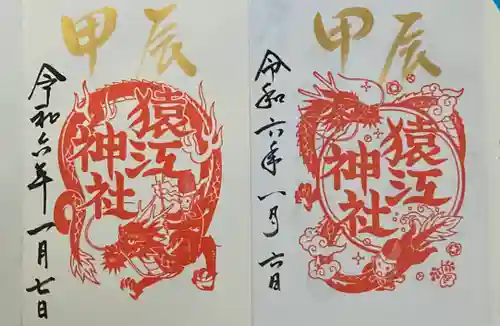 甲辰
猿江神社
令和六年一月七日
甲辰
猿江神社
令和六年一月六日